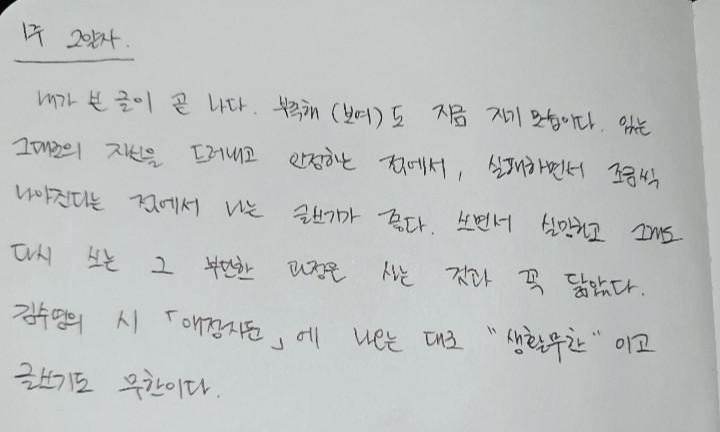 1주 2일차.
내가 쓴 글이 곧 나다. 부족해 (보여)도 지금 자기 모습이다. 있는
그대로의 자신을 드러내고 인정하는 점에서, 실패하면서 조금씩
나아진다는 점에서 나는 글쓰기가 좋다. 쓰면서 실망하고 그래도
다시 쓰는 그 부단한 과정은 사는 것과 꼭 닮았다.
김수영의 시 「애정지둔」에 나오는 대로 "생활무한"이고
글쓰기도 무한이다.